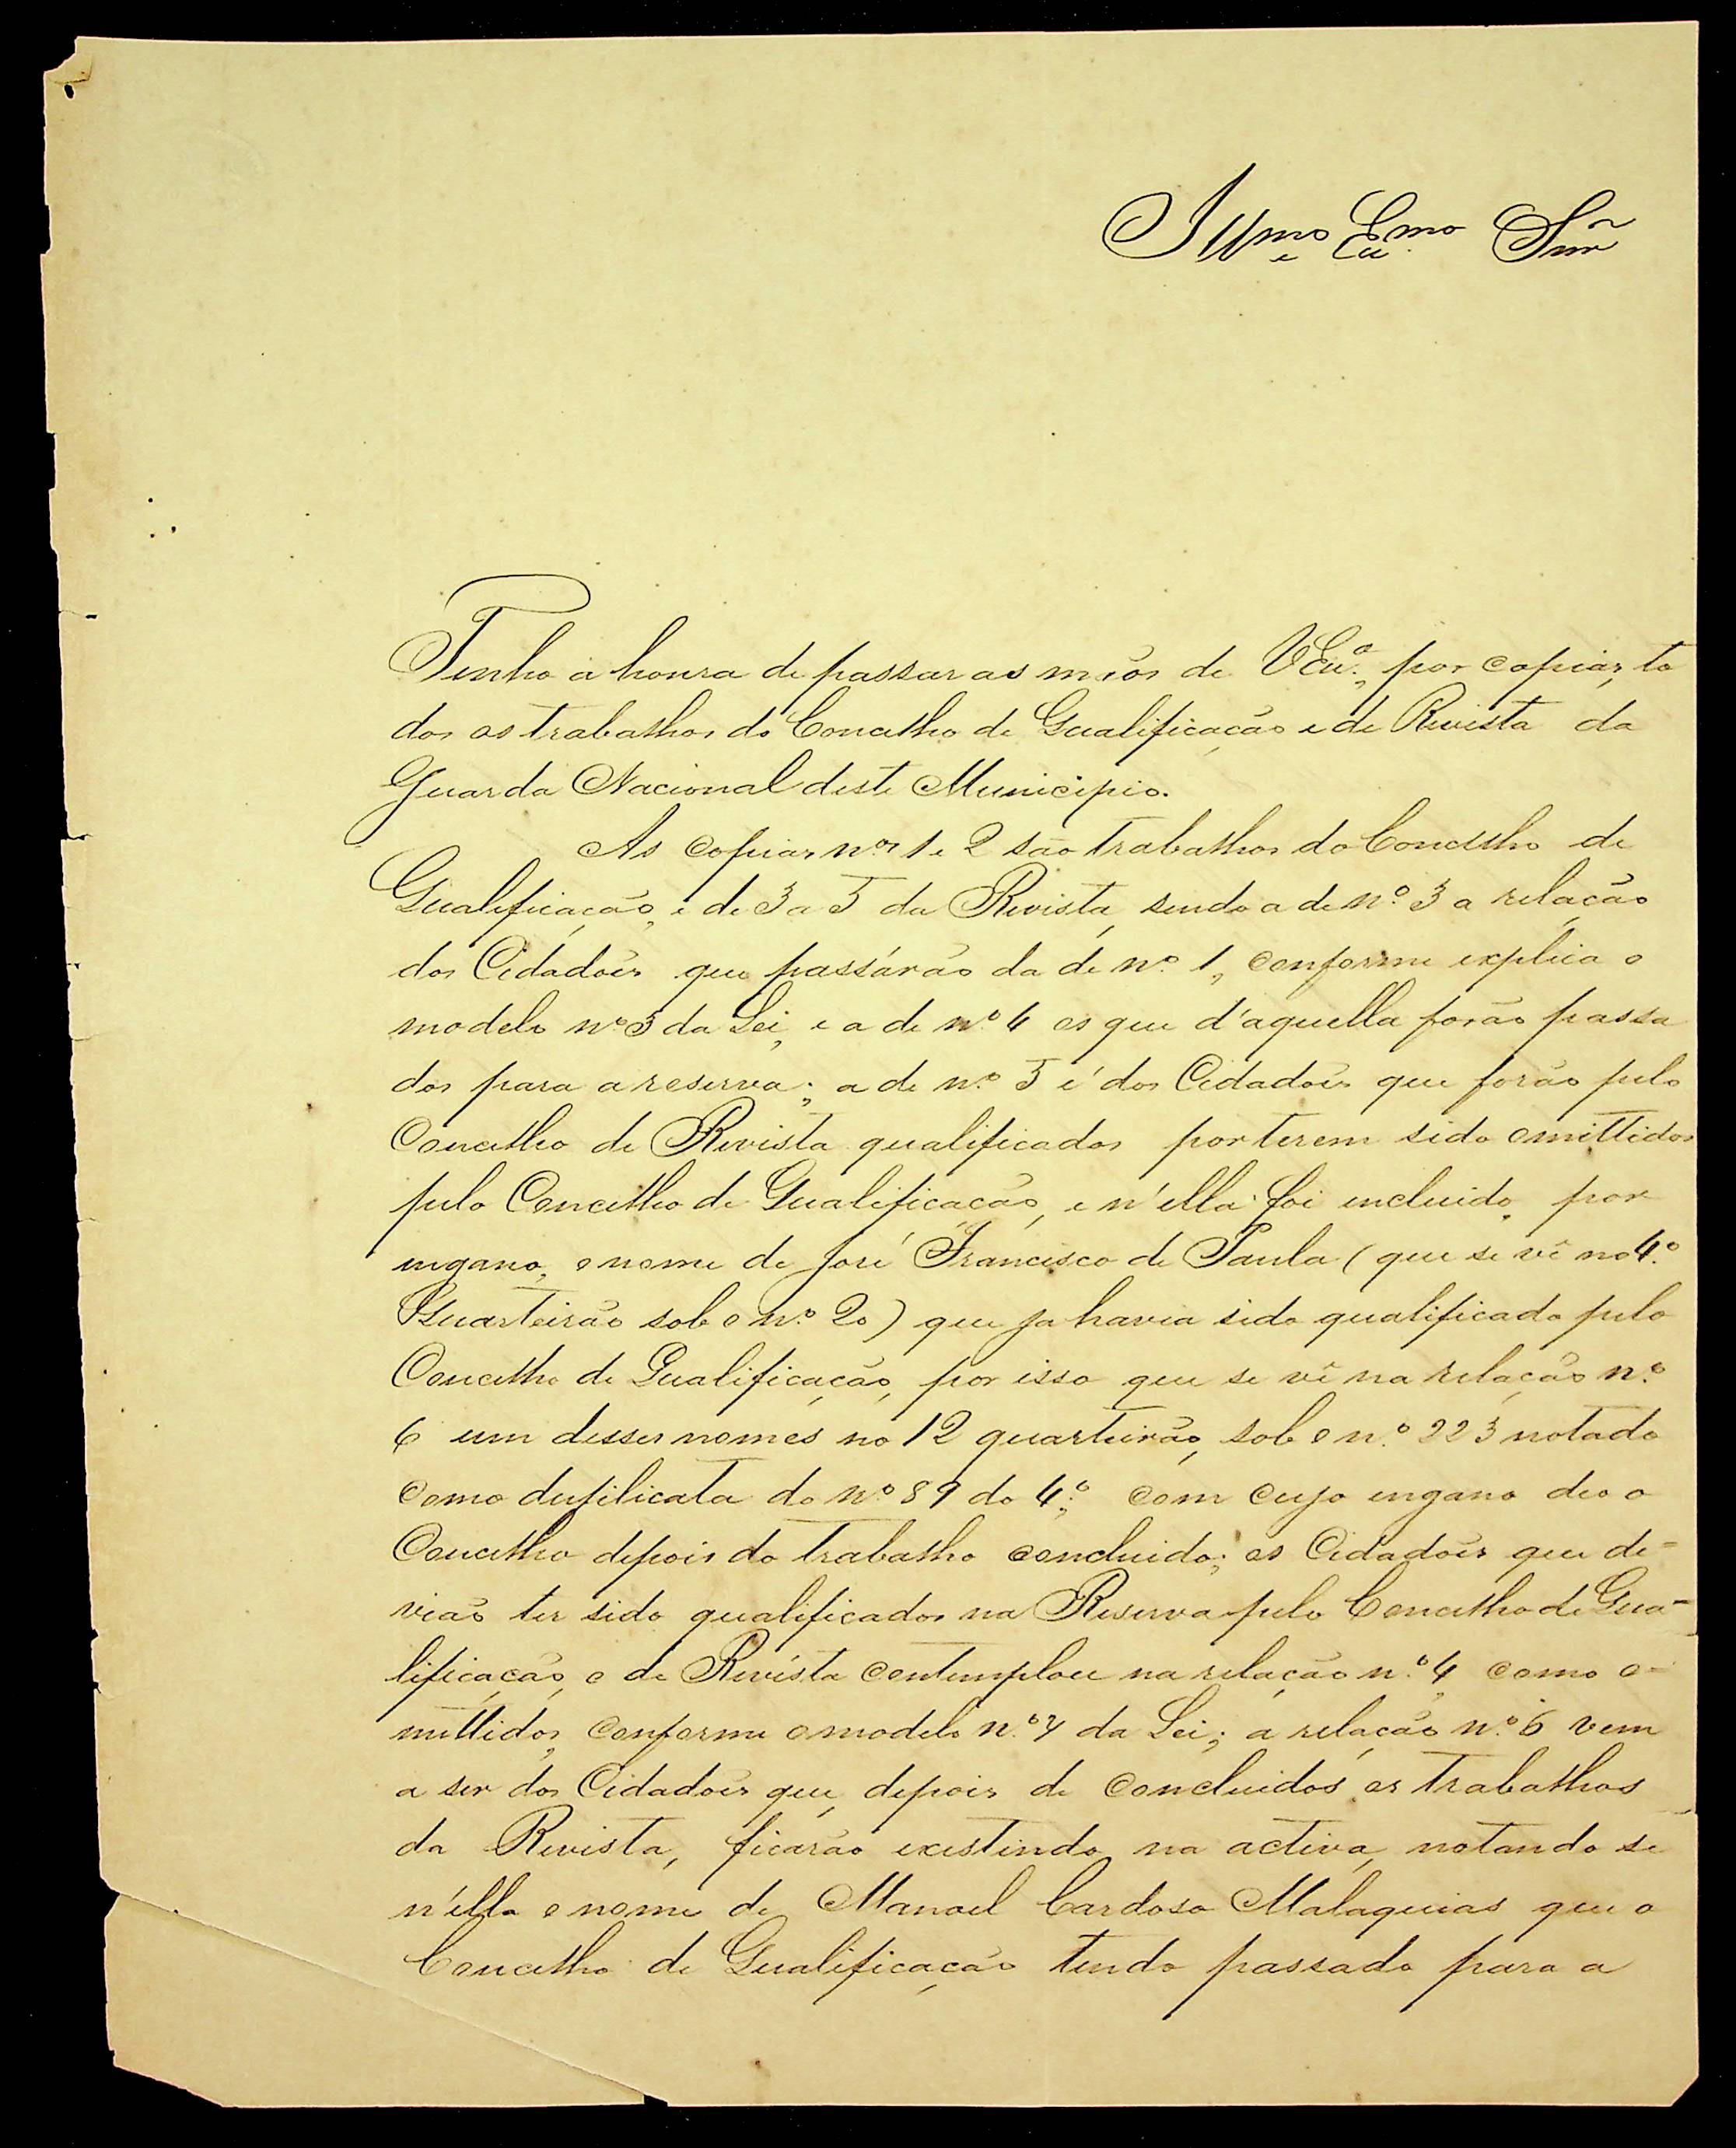 Illmo e Exmo Snr
Tenho a honra de passar as mãos de VExa., por copias, to
dos os trabalhos do Concelho de Qualificação e de Revista da
Guarda Nacional deste Municipio.
As copias nos 1 e 2 são trabalhos do Concelho de
Qualificação, e de 3 a 5 da Revista, sendo a de nº 3 a relação
dos Cidadões que passárão da de nº 1, conforme explica o
modelo nº 3 da Lei, e a de nº 4 os que d'aquella forão passa
dos para a reserva; a de nº 5 é dos Cidadões que forão pelo
Concelho de Revista qualificados por terem sido omittidos
pelo Concelho de Qualificação, e n'ella foi incluido, por
ingano, o nome de José Francisco de Paula (que se vê no 4º
Quarteirão sob o nº 20) que ja havia sido qualificado pelo
Concelho de Qualificação, por isso que se vê na relação nº
6 um desses nomes no 12 quarteirão, sob o nº 223 notado
como duplicata do nº 89 do 4º; com cujo ingano deo o
Concelho depois do trabalho concluido; os Cidadões que de=
vião ter sido qualificados na Reserva pelo Concelho de Qua=
lificação, o de Revista contemplou na relação nº 4 como o=
mittidos, conforme o modelo nº 4 da Lei; a relação nº 6 vem
a ser dos Cidadões que, depois de concluidos os trabalhos
da Revista, ficarão existindo na activa, notando se
n'ella o nome de Manoel Cardoso Malaquias que o
Concelho de Qualificação tendo passado para a